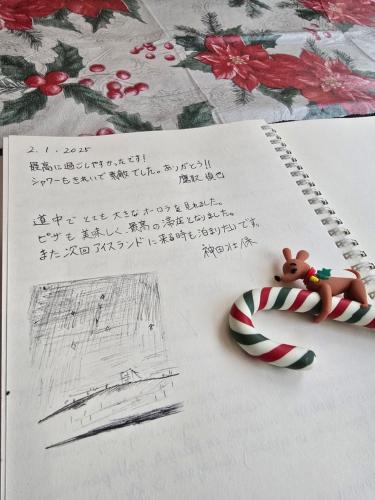 2.1.2025
最高に過ごしやすかったです!
シャワーもきれいで素敵でした。ありがとう!!
鷹取
道中でとても大きなオーロラを見れました。
ピザも美味しく最高の滞在となりました。
また次回アイスランドに来る時も泊りたいです。
神田